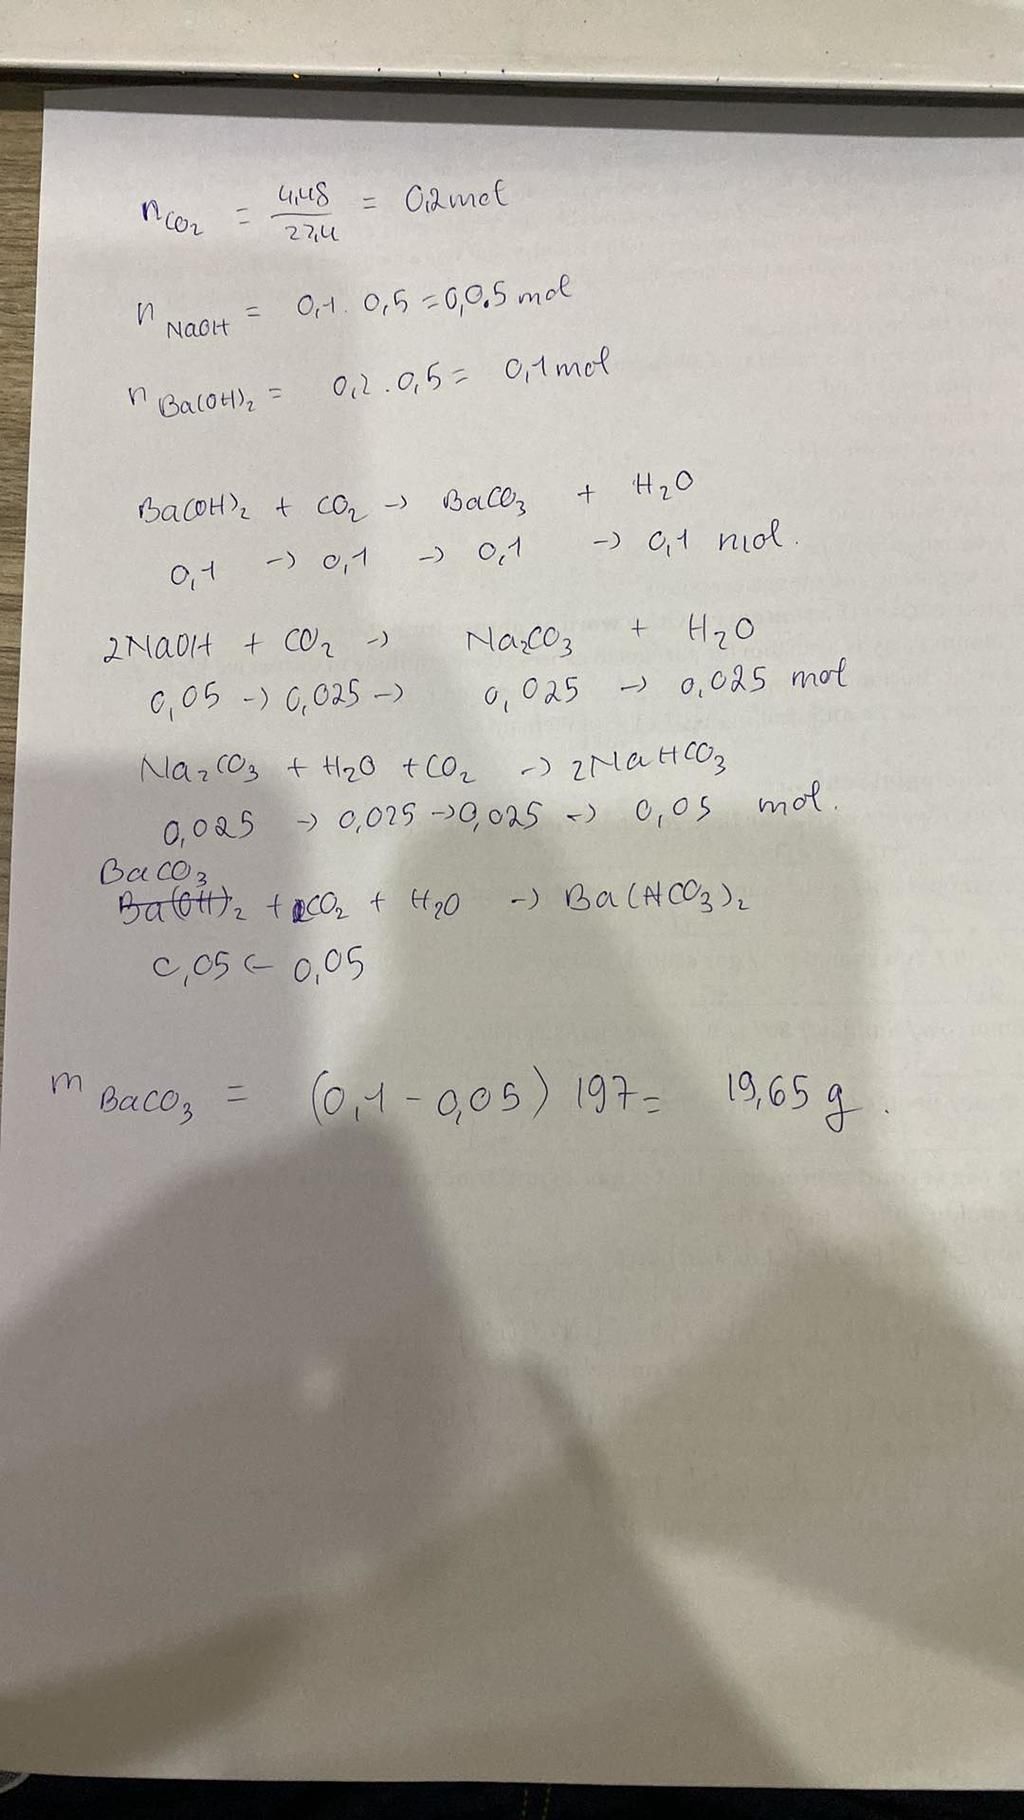 nCO2 = 4,48/22,4 = 0,2 mol
nNaOH = 0,1 . 0,5 = 0,0.5 mol
nBa(OH)2 = 0,2 . 0,5 = 0,1 mol
Ba(OH)2 + CO2 -> BaCO3 + H2O
0,1 -> 0,1 -> 0,1 -> 0,1 mol.
2NaOH + CO2 -> Na2CO3 + H2O
0,05 -> 0,025 -> 0,025 -> 0,025 mol
Na2CO3 + H2O + CO2 -> 2NaHCO3
0,025 -> 0,025 -> 0,025 -> 0,05 mol.
BaCO3
Ba(OH)2 + CO2 + H2O -> Ba(HCO3)2
0,05 <- 0,05
mBaCO3 = (0,1 - 0,05) 197 = 19,65 g.